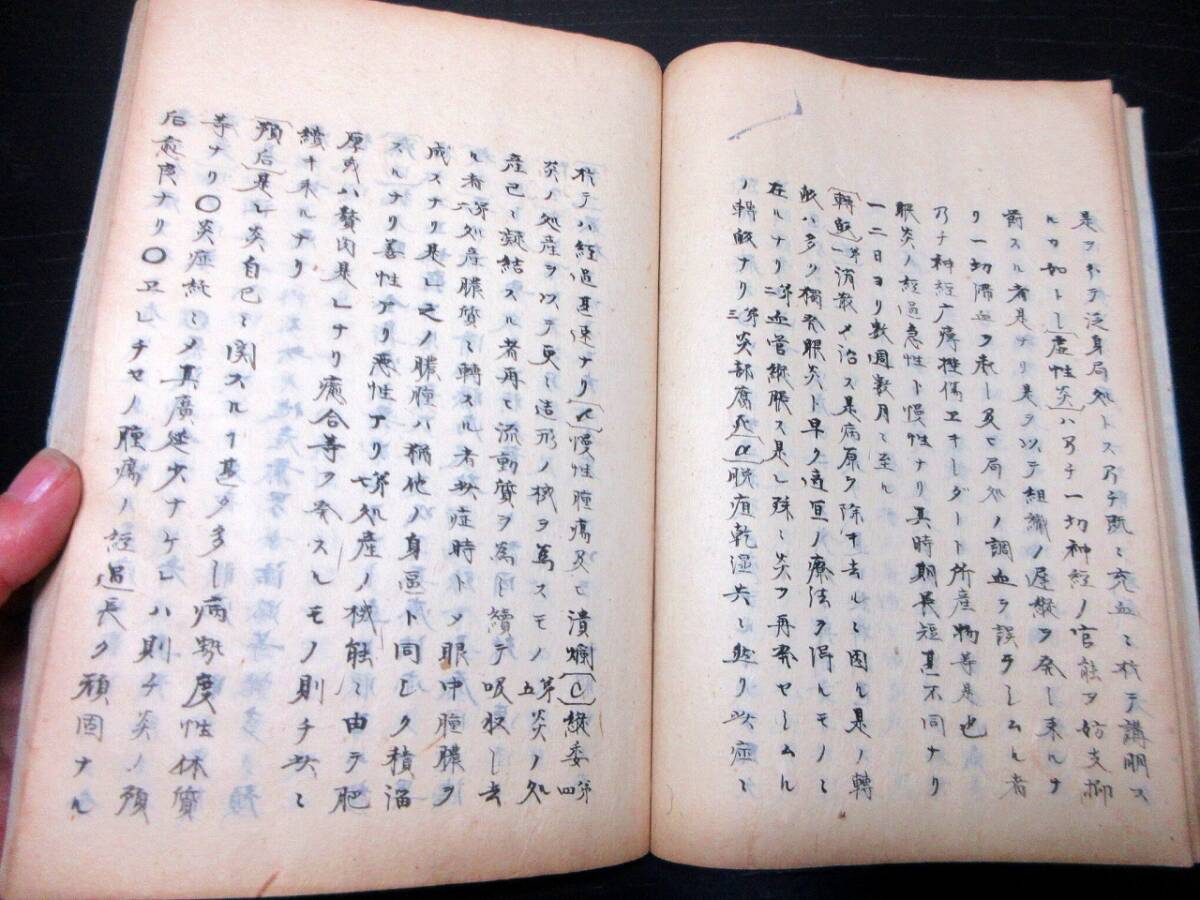 是ヲ以テ泛身局処トス乃チ既ニ充血ニ於テ講明ス
ルカ如シ〔虚性炎〕ハ乃チ一切神経ノ官能ヲ妨支
スル者是ナリ是ヲ以テ組織ノ遅縦ヲ発シ来ルナ
リ一切滞血ヲ来シ及ヒ局処ノ調血ヲ誤ラシムル者
乃チ神経广痺挫傷ヱキシダート所産物等是也
眼炎ノ経過急性ト慢性ナリ其時期長短甚不同ナリ
一二日ヨリ数週数月ニ至ル
〔轉帰〕第一消散〆治ス是病原ヲ除キ去ルニ因ル是ノ轉
帰ハ多ク獨発眼炎ト早ク適宜ノ療法ヲ得ルモノニ
在ルナリ第二血管縦脹ス是レ殊ニ炎ヲ再発セシムル
ノ轉帰ナリ第三炎部腐死〔α〕脱疽乾湿共ニ然リ此症ニ
於テハ経過甚速ナリ〔〕慢性腫瘍及ヒ潰爛〔C〕縦委第四
炎ノ処産ヲ以テ更ニ造形ノ械ヲ為スモノ第五炎ノ処
産已ニ凝結スル者再ヒ流動質ヲ為シ續テ吸収シ去
ル者第六処産膿質ニ轉スル者此症時トメ眼中膿ヲ
成スナリ是レ之ノ膿腫ハ稱他ノ身區ト同シク積溜
スルナリ善性アリ悪性アリ第七処産ノ械能ニ由テ肥
厚或ハ贅肉是レナリ癒合等ヲ発スルモノ則チ此ニ
續キ来ルナリ
〔預后〕是レ炎自己ニ関スルヿ甚タ多シ病勢度性体質
等ナリ〇炎症純ニメ其廣延少ナケレハ則チ炎ノ預
后愈良ナリ〇卫ヒチセノ腫瘍ハ経過長ク頑固ナル